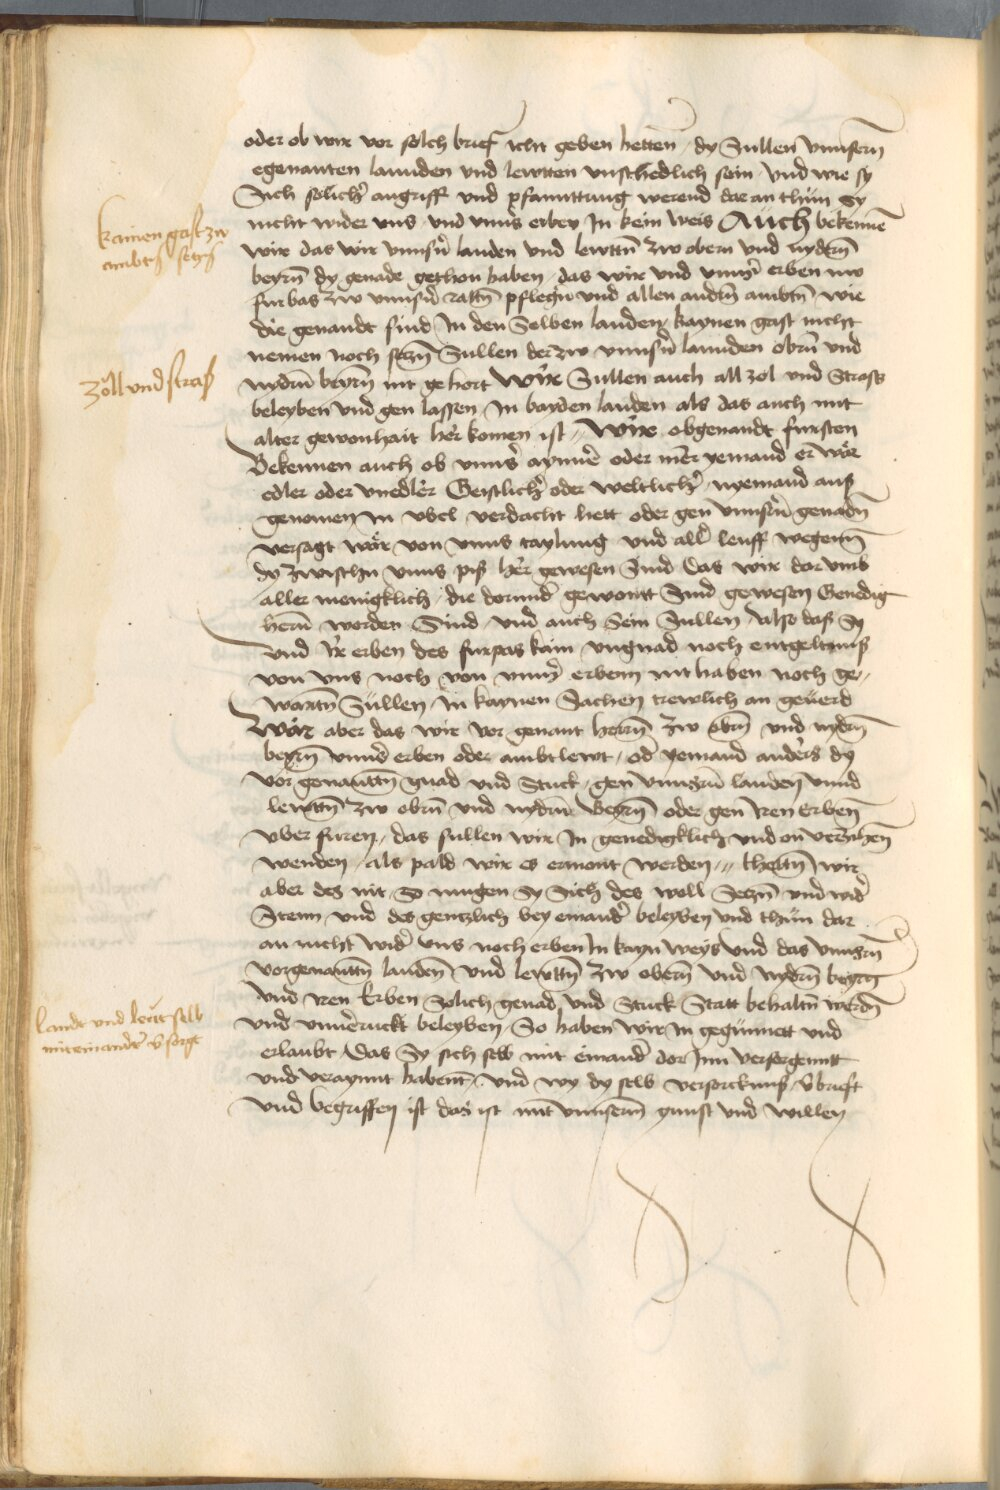 oder ob wir vor solch brief icht geben hetten / dy Sullen vnnsern̄
egenanten lannden vnd lewten vnschedlich sein / vnd wie sy
Sich solicher angriff vnd pfanttung werend dar an thün Sy
nicht wider vns vnd vnns erben In kein weis Auch bekennē
kainen gast zw
ambtn̄ setzn̄
wir das wir vnnsern̄ landen vnd lewttn̄ zw obern vnd nydrn̄
beyrn̄ dy genade gethon haben / das wir vnd vnnser erben nw
furbas zw vnnsern̄ rattn̄ pflegn̄ vnd allen andern̄ ambtn̄ wie
die genandt sind In den Selben landen / kaynen gast nicht
nemen noch setzn̄ Sullen der zw vnnsern̄ lannden obrn̄ vnd
zöll vnd straß
nydrn̄ beyrn̄ nit gehort Wir Sullen auch all zol vnd Strass
beleyben vnd gen lassen In bayden landen als das auch mit
alter gewonhait her komen ist // Wir obgenandt fursten
Bekennen auch ob vnnser aynner oder mer yemand er wär
edler oder vnedler Geistlicher oder weltlicher / nyemand auß
genomen In vbel verdacht hett oder gen vnnsern̄ genadn̄
versagt wär von vnns taylung vnd aller leuff wegenn̄
dy zwischn̄ vnns piß her gewesen Sind Das wir dar vmb
aller menigklich / die dorunder gewontt Sind gewesen Genedig
hern̄ worden Sind / vnd auch Sein Sullen / Also daß Sy
vnd Ir erben des furpas kain vngnad noch entgeltnuß
von vns noch von vnnsern̄ erbenn nit haben noch ge//
wartn̄ Süllen / In kaynen Sachen trewlich an geuerd
Wär aber das wir vor genant herrn̄ zw obrn̄ vnd nydrn̄
beyrn̄ vnnser erben oder ambtlewt / od yemand anders dy
vor genanttn̄ gnad vnd Stuck / gen vnnsrn̄ landen vnnd
lewttn̄ zw obrn̄ vnd nydrn̄ Beyrn̄ oder gen Iren Erben
vber furen / das sullen wir In genedigklich vnd on verziehen̄
wenden / als pald wir es ermont werden // thettn̄ wir
aber des nit / So mugen Sy Sich des woll Setzn̄ vnd wider
Stenn / vnd des gentzlich bey einander beleyben vnd thün dar
an nicht wider vns noch erben In kayn weys Vnd das vnnsrn̄
vorgenanttn̄ landen̄ vnd lewttn̄ zw obern̄ vnd nydrn̄ beyrn̄
vnd Iren Erben Solich genad vnd Stuck Statt behaltn̄ werdn̄
landt vnd leut selb
miteinander v̄sorgt
vnd vnuerruckt beleyben / So haben wir In gegünnett vnd
erlaubt Das Sy sich selb mit einander dor Inn versorgenntt
vnd veraynnt habent / vnd wy dy selb versorcknuß v̄brieft
vnd begriffen ist das ist mit vnnserm̄ gunst vnd willen